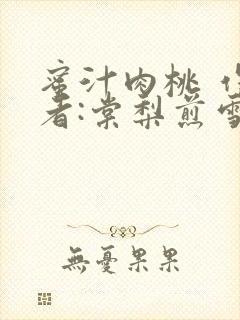 蜜汁肉桃 作
者:棠梨煎雪
無憂果果